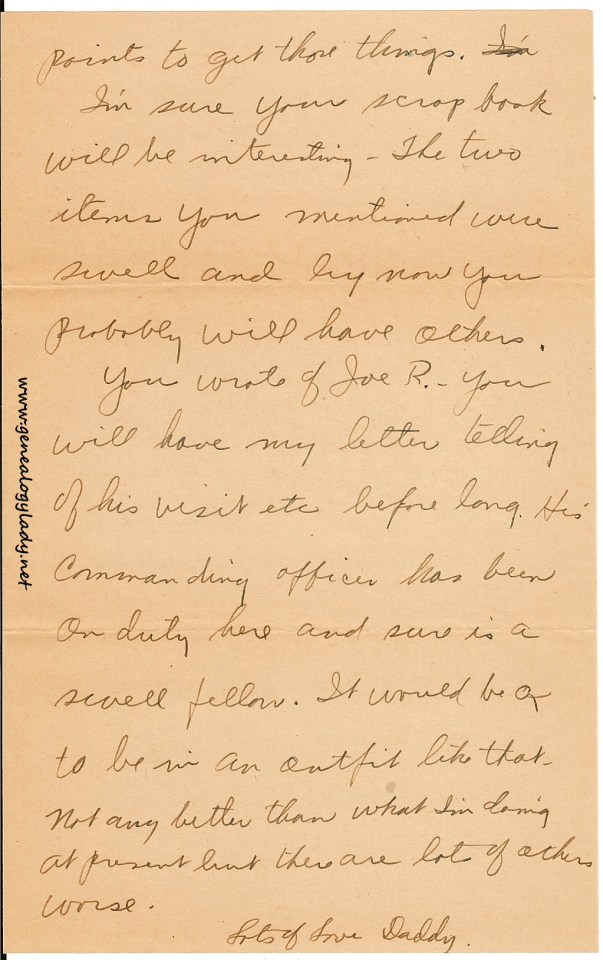 points to get those things. I'm
I'm sure your scrap book
will be interesting - The two
items you mentioned were
swell and by now you
probably will have others.
You wrote of Joe R. - You
will have my letter telling
of his visit etc before long. His
Commanding officer has been
on duty here and sure is a
swell fellow. It would be O
to be in an outfit like that -
Not any better than what I'm doing
at present but there are lots of others
worse.
Lots of Love Daddy.
www.genealogylady.net